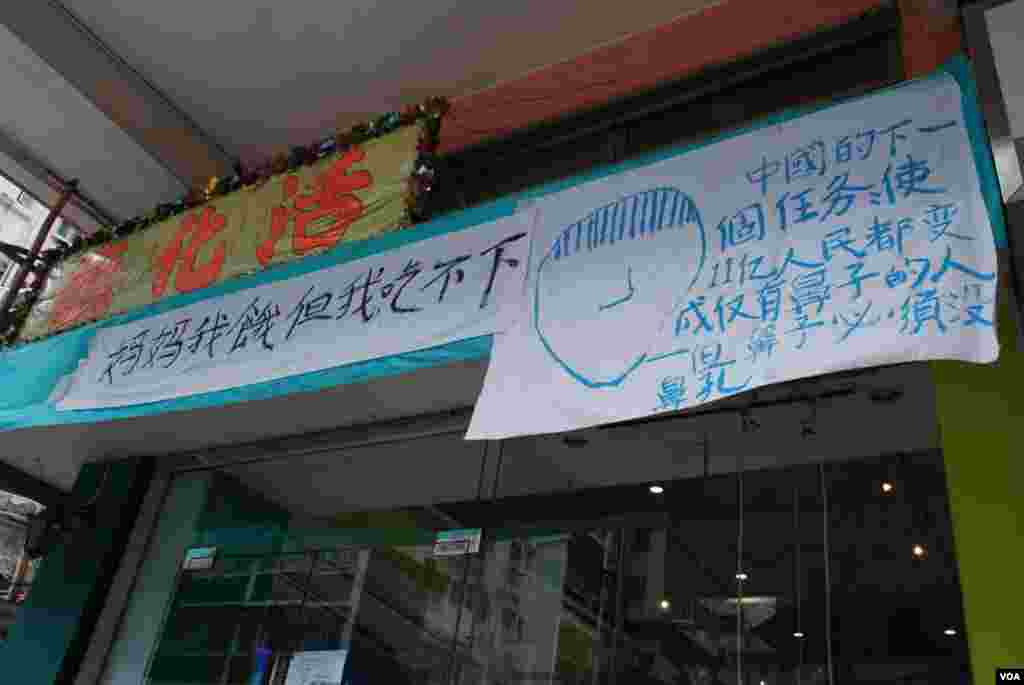 化活
妈妈我餓但我吃不下
中國的下一
個任务:使
11亿人民都变
成仅有鼻子的人
一但鼻子必須没
鼻孔
VOA